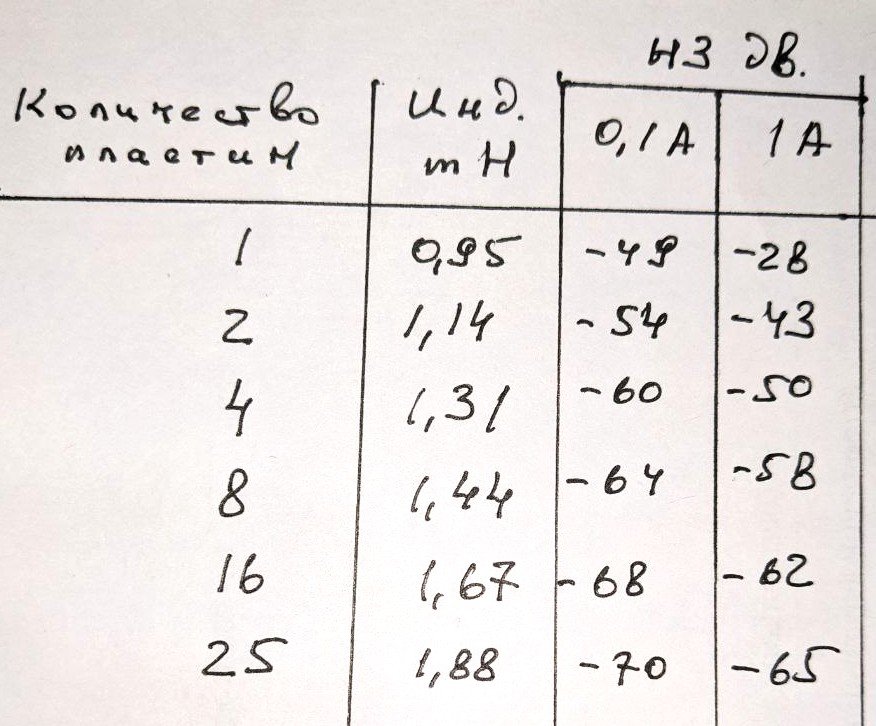 НЗ дв.
Количество Инд. 0,1 А 1 А
пластин mH
1 0,95 -49 -28
2 1,14 -54 -43
4 1,31 -60 -50
8 1,44 -64 -58
16 1,67 -68 -62
25 1,88 -70 -65